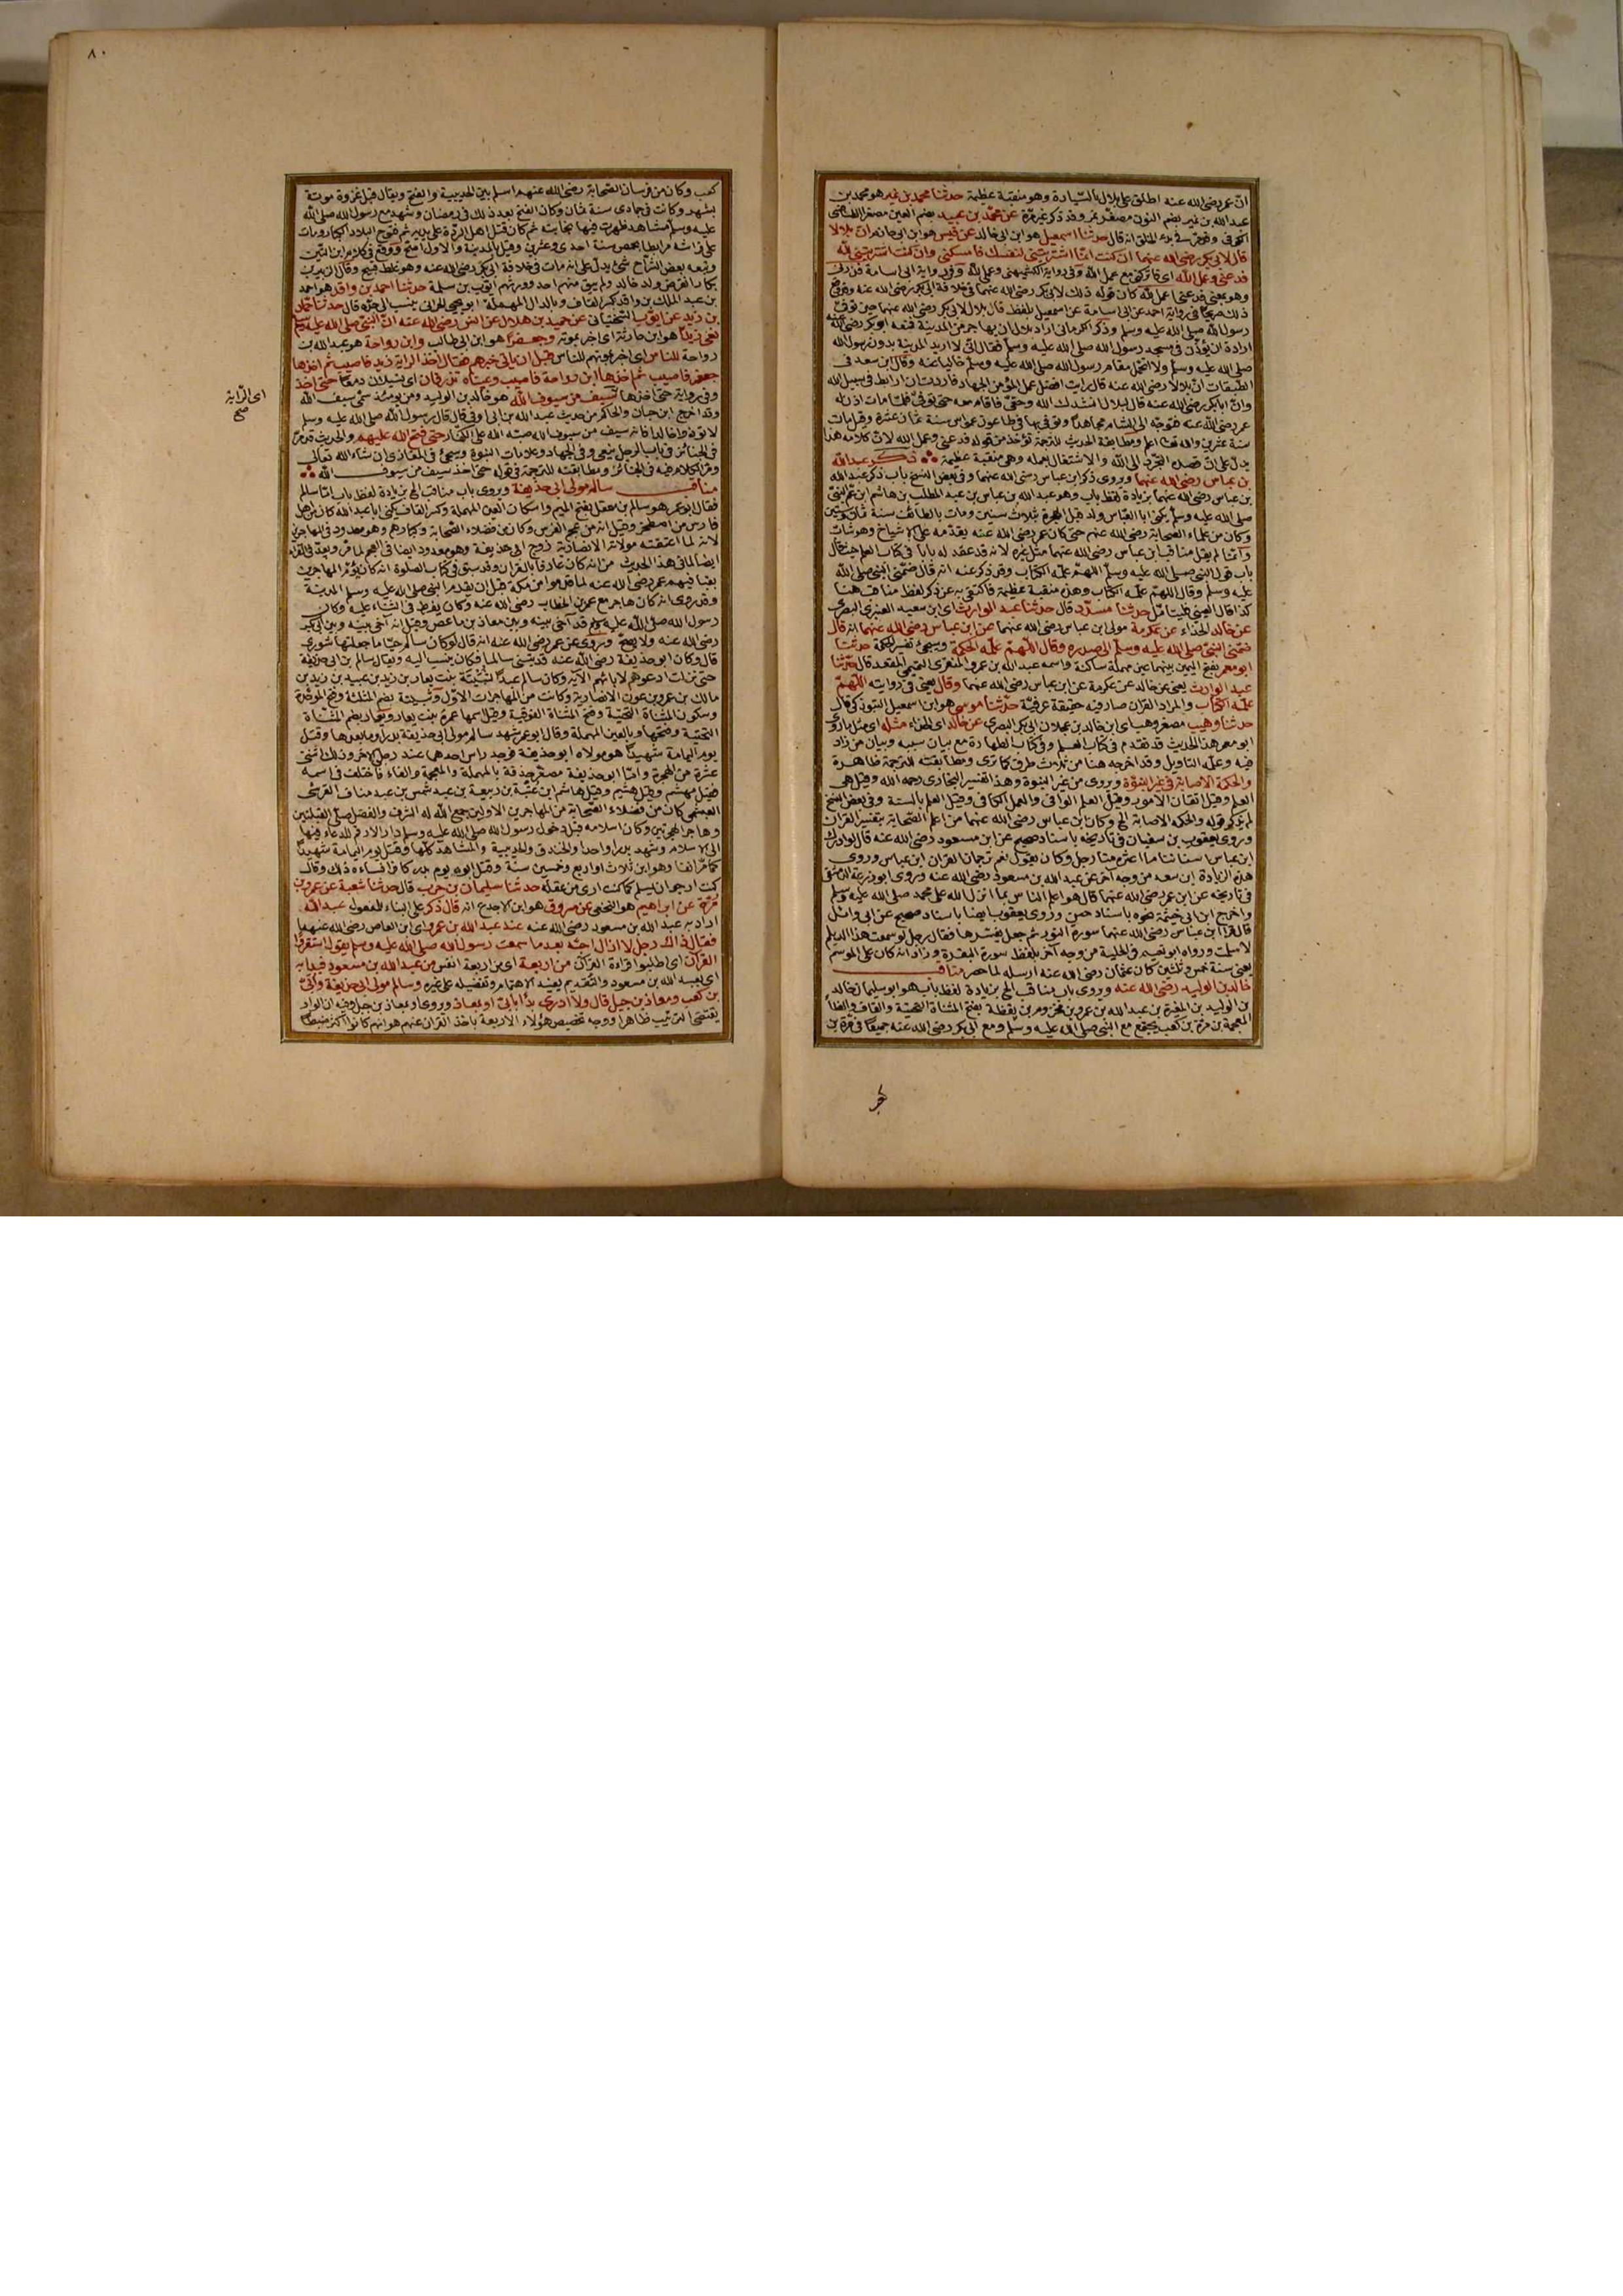 ان عمر رضي الله عنه اطلق على بلال بالسيادة وهو منقبة عظيمة حدثنا محمد بن نمير هو محمد بن
عبد الله بن نمير بضم النون مصغر نمر وقد ذكر غير مرة عن محمد بن عبيد بضم العين مصغر الطنافسي
الكوفي وقد مر في بدء الخلق انه قال حدثنا اسمعيل هو ابن ابي خالد عن قيس هو ابن ابي حازم ان بلالا
قال لابي بكر رضي الله عنهما ان كنت انما اشتريتني لنفسك فامسكني وان كنت انما اشتريتني لله
فدعني وعمل الله اي فاتركني مع عمل الله وفي رواية الكشميهني وعملي لله وفي رواية ابي اسامة فذرني
وهو بمعنى فدعني اعمل لله كان قوله ذلك لابي بكر رضي الله عنهما في خلافة ابي بكر رضي الله عنه وقد وقع
ذلك صريحا في رواية احمد عن ابي اسامة عن اسمعيل بلفظ قال بلال لابي بكر رضي الله عنهما حين توفي
رسول الله صلى الله عليه وسلم وذكر الكرماني اراد بلال ان يهاجر من المدينة فمنعه ابو بكر رضي الله عنه
ارادة ان يؤذن في مسجد رسول الله صلى الله عليه وسلم فقال اني لا اريد المدينة بدون رسول الله
صلى الله عليه وسلم ولا اتحمل مقام رسول الله صلى الله عليه وسلم خاليا عنه وقال ابن سعد في
الطبقات ان بلالا رضي الله عنه قال رايت افضل عمل المؤمن الجهاد فاردت ان ارابط في سبيل الله
وان ابا بكر رضي الله عنه قال لبلال انشدك الله وحقي فاقام معه حتى توفي فلما مات اذن له
عمر رضي الله عنه فتوجه الى الشام مجاهدا وتوفي بها في طاعون عمواس سنة ثمان عشرة وقيل مات
سنة عشرين والله تعالى اعلم ومطابقة الحديث للترجمة تؤخذ من قوله فدعني وعمل الله لان كلامه هذا
يدل على ان قصده التجرد الى الله والاشتغال بعمله وهي منقبة عظيمة ذكر عبد الله
بن عباس رضي الله عنهما ويروى ذكر ابن عباس رضي الله عنهما وفي بعض النسخ باب ذكر عبد الله
بن عباس رضي الله عنهما بزيادة لفظ باب وهو عبد الله بن عباس بن عبد المطلب بن هاشم ابن عم النبي
صلى الله عليه وسلم يكنى ابا العباس ولد قبل الهجرة بثلاث سنين ومات بالطائف سنة ثمان وستين
وكان من علماء الصحابة رضي الله عنهم حتى كان عمر رضي الله عنه يقدمه على الاشياخ وهو شاب
وانما لم يقل مناقب ابن عباس رضي الله عنهما مثل غيره لانه قد عقد له بابا في كتاب العلم حيث قال
باب قول النبي صلى الله عليه وسلم اللهم علمه الكتاب وقد ذكر عنه انه قال ضمني النبي صلى الله
عليه وسلم وقال اللهم علمه الكتاب وهذه منقبة عظيمة فاكتفى به عن ذكر لفظ مناقب هنا
كذا قال العيني فليتامل حدثنا مسدد قال حدثنا عبد الوارث اي ابن سعيد العنبري البصري
عن خالد الحذاء عن عكرمة مولى ابن عباس رضي الله عنهما عن ابن عباس رضي الله عنهما انه قال
ضمني النبي صلى الله عليه وسلم الى صدره وقال اللهم علمه الحكمة ويجيء تفسير الحكمة حدثنا
ابو معمر بفتح الميمين بينهما عين مهملة ساكنة واسمه عبد الله بن عمرو المنقري التميمي المقعد قال حدثنا
عبد الوارث يعني عن خالد عن عكرمة عن ابن عباس رضي الله عنهما وقال يعني في روايته اللهم
علمه الكتاب والمراد القران صار فيه حقيقة عرفية حدثنا موسى هو ابن اسمعيل التبوذكي قال
حدثنا وهيب مصغر وهب اي ابن خالد بن عجلان ابي بكر البصري عن خالد اي الحذاء مثله اي مثل ما روى
ابو معمر هذا الحديث قد تقدم في كتاب العلم وفي كتاب الطهارة مع بيان سببه وبيان من زاد
فيه وعلمه التاويل وقد اخرجه هنا من ثلاث طرق كما ترى ومطابقته للترجمة ظاهرة
والحكمة الاصابة في غير النبوة ويروى من غير النبوة وهذا تفسير البخاري رحمه الله وقيل هي
العلم وقيل اتقان الامور وقيل العلم الوافي والعمل الكافي وقيل العلم بالسنة وفي بعض النسخ
لم يذكر قوله والحكمة الاصابة الخ وكان ابن عباس رضي الله عنهما من اعلم الصحابة بتفسير القران
وروى يعقوب بن سفيان في تاريخه باسناد صحيح عن ابن مسعود رضي الله عنه قال لو ادرك
ابن عباس اسناننا ما عاشره منا رجل وكان يقول نعم ترجمان القران ابن عباس وروى
هذه الزيادة ابن سعد من وجه اخر عن عبد الله بن مسعود رضي الله عنه وروى ابو زرعة الدمشقي
في تاريخه عن ابن عمر رضي الله عنهما قال هو اعلم الناس بما انزل الله على محمد صلى الله عليه وسلم
واخرج ابن ابي خيثمة نحوه باسناد حسن وروى يعقوب ايضا باسناد صحيح عن ابي وائل
قال قرا ابن عباس رضي الله عنهما سورة النور ثم جعل يفسرها فقال رجل لو سمعت هذا الديلم
لاسلمت ورواه ابو نعيم في الحلية من وجه اخر بلفظ سورة البقرة وزاد انه كان على الموسم
يعني سنة خمس وثلثين كان عثمان رضي الله عنه ارسله لما حصر مناقب
خالد بن الوليد رضي الله عنه ويروى باب مناقب الخ بزيادة لفظ باب هو ابو سليمان خالد
بن الوليد بن المغيرة بن عبد الله بن عمرو بن مخزوم بن يقظة بفتح المثناة التحتية والقاف والظا
المعجمة بن مرة بن كعب يجتمع مع النبي صلى الله عليه وسلم ومع ابي بكر رضي الله عنه جميعا في مرة بن
٨٠
كعب وكان من فرسان الصحابة رضي الله عنهم اسلم بين الحديبية والفتح ويقال قبل غزوة موتة
بشهر وكانت في جمادى سنة ثمان وكان الفتح بعد ذلك في رمضان وشهد مع رسول الله صلى الله
عليه وسلم مشاهد ظهرت فيها نجابته ثم كان قتل اهل الردة على يديه ثم فتوح البلاد الكبار ومات
على فراشه مرابطا بحمص سنة احدى وعشرين وقيل بالمدينة والاول اصح ووقع في كلام ابن التين
وتبعه بعض الشراح شئ يدل على انه مات في خلافة ابي بكر رضي الله عنه وهو غلط قبيح وقال الزبير بن
بكار انقرض ولد خالد ولم يبق منهم احد وورثهم ايوب بن سلمة حدثنا احمد بن واقد هو احمد
بن عبد الملك بن واقد بكسر القاف وبالدال المهملة ابو يحيى الحراني ينسب الى جده قال حدثنا حماد
بن زيد عن ايوب السختياني عن حميد بن هلال عن انس رضي الله عنه ان النبي صلى الله عليه وسلم
نعى زيدا هو ابن حارثة اي اخبر بموته وجعفرا هو ابن ابي طالب وابن رواحة هو عبد الله بن
رواحة للناس اي اخبر بموتهم للناس قبل ان ياتي خبرهم فقال اخذ الراية زيد فاصيب ثم اخذها
جعفر فاصيب ثم اخذها ابن رواحة فاصيب وعيناه تذرفان اي تسيلان دمعا حتى اخذ
وفي رواية حتى اخذها سيف من سيوف الله هو خالد بن الوليد ومن يومئذ سمي سيف الله
وقد اخرج ابن حبان والحاكم من حديث عبد الله بن ابي اوفى قال قال رسول الله صلى الله عليه وسلم
لا تؤذوا خالدا فانه سيف من سيوف الله صبه الله على الكفار حتى فتح الله عليهم والحديث قد مر
في الجنائز في باب الرجل ينعى وفي الجهاد وعلامات النبوة ويجيء في المغازي ان شاء الله تعالى
ومر الكلام فيه في الجنائز ومطابقته للترجمة في قوله حتى اخذ سيف من سيوف الله
مناقب سالم مولى ابي حذيفة ويروى باب مناقب الخ بزيادة لفظ باب اما سالم
فقال ابو عمر هو سالم بن معقل بفتح الميم واسكان العين المهملة وكسر القاف يكنى ابا عبد الله كان من اهل
فارس من اصطخر وقيل انه من عجم الفرس وكان من فضلاء الصحابة وكبارهم وهو معدود في المهاجرين
لانه لما اعتقته مولاته الانصارية زوج ابي حذيفة وهو معدود ايضا في العجم لما مر ويعد في القراء
ايضا لما في هذا الحديث من انه كان عارفا بالقران وقد سبق في كتاب الصلوة انه كان يؤم المهاجرين
بقبا فيهم عمر رضي الله عنه لما قدموا من مكة قبل ان يقدم النبي صلى الله عليه وسلم المدينة
وقد روى انه كان هاجر مع عمر بن الخطاب رضي الله عنه وكان يفرط في الثناء عليه وكان
رسول الله صلى الله عليه وسلم قد آخى بينه وبين معاذ بن ماعص وقيل انه آخى بينه وبين ابي بكر
رضي الله عنه ولا يصح ويروى عن عمر رضي الله عنه انه قال لو كان سالم حيا ما جعلتها شورى
قال وكان ابو حذيفة رضي الله عنه قد تبنى سالما فكان ينسب اليه ويقال سالم بن ابي حذيفة
حتى نزلت ادعوهم لابائهم الآية وكان سالم عبدا لثبيتة بنت يعار بن زيد بن عبيد بن زيد بن
مالك بن عمرو بن عوف الانصارية وكانت من المهاجرات الاول وثبيتة بضم المثلثة وفتح الموحدة
وسكون المثناة التحتية وفتح المثناة الفوقية وقيل اسمها عمرة بنت يعار ويعار بضم المثناة
التحتية وفتحها وبالعين المهملة وقال ابو عمر شهد سالم مولى ابي حذيفة بدرا وما بعدها وقتل
يوم اليمامة شهيدا هو ومولاه ابو حذيفة فوجد راس احدهما عند رجل الاخر وذلك اثنتي
عشرة من الهجرة واما ابو حذيفة مصغر حذفة بالمهملة والمعجمة والفاء فاختلف في اسمه
فقيل مهشم وقيل هشيم وقيل هاشم ابن عتبة بن ربيعة بن عبد شمس بن عبد مناف القرشي
العبشمي كان من فضلاء الصحابة من المهاجرين الاولين جمع الله له الشرف والفضل صلى القبلتين
وهاجر الهجرتين وكان اسلامه قبل دخول رسول الله صلى الله عليه وسلم دار الارقم للدعاء فيها
الى الاسلام وشهد بدرا واحدا والخندق والحديبية والمشاهد كلها وقتل يوم اليمامة شهيدا
كما مر انفا وهو ابن ثلاث او اربع وخمسين سنة وقتل ابوه يوم بدر كافرا فساءه ذلك وقال
كنت ارجو ان يسلم كما كنت ارى من عقله حدثنا سليمان بن حرب قال حدثنا شعبة عن عمرو بن
مرة عن ابراهيم هو النخعي عن مسروق هو ابن الاجدع انه قال ذكر على البناء للمفعول عبد الله
اراد به عبد الله بن مسعود رضي الله عنه عند عبد الله بن عمرو اي ابن العاص رضي الله عنهما
فقال ذاك رجل لا ازال احبه بعد ما سمعت رسول الله صلى الله عليه وسلم يقول استقرئوا
القرآن اي اطلبوا قراءة القرآن من اربعة اي من اربعة انفس من عبد الله بن مسعود فبدا به
اي بعبد الله بن مسعود والتقديم يفيد الاهتمام وتفضيله على غيره وسالم مولى ابي حذيفة وابي
بن كعب ومعاذ بن جبل قال ولا ادري بدأ بابي او بمعاذ ويروى او بمعاذ بن جبل وفيه ان الواو
يقتضي الترتيب ظاهرا ووجه تخصيص هؤلاء الاربعة باخذ القرآن عنهم هو انهم كانوا اكثر ضبطا
اى الراية
صح